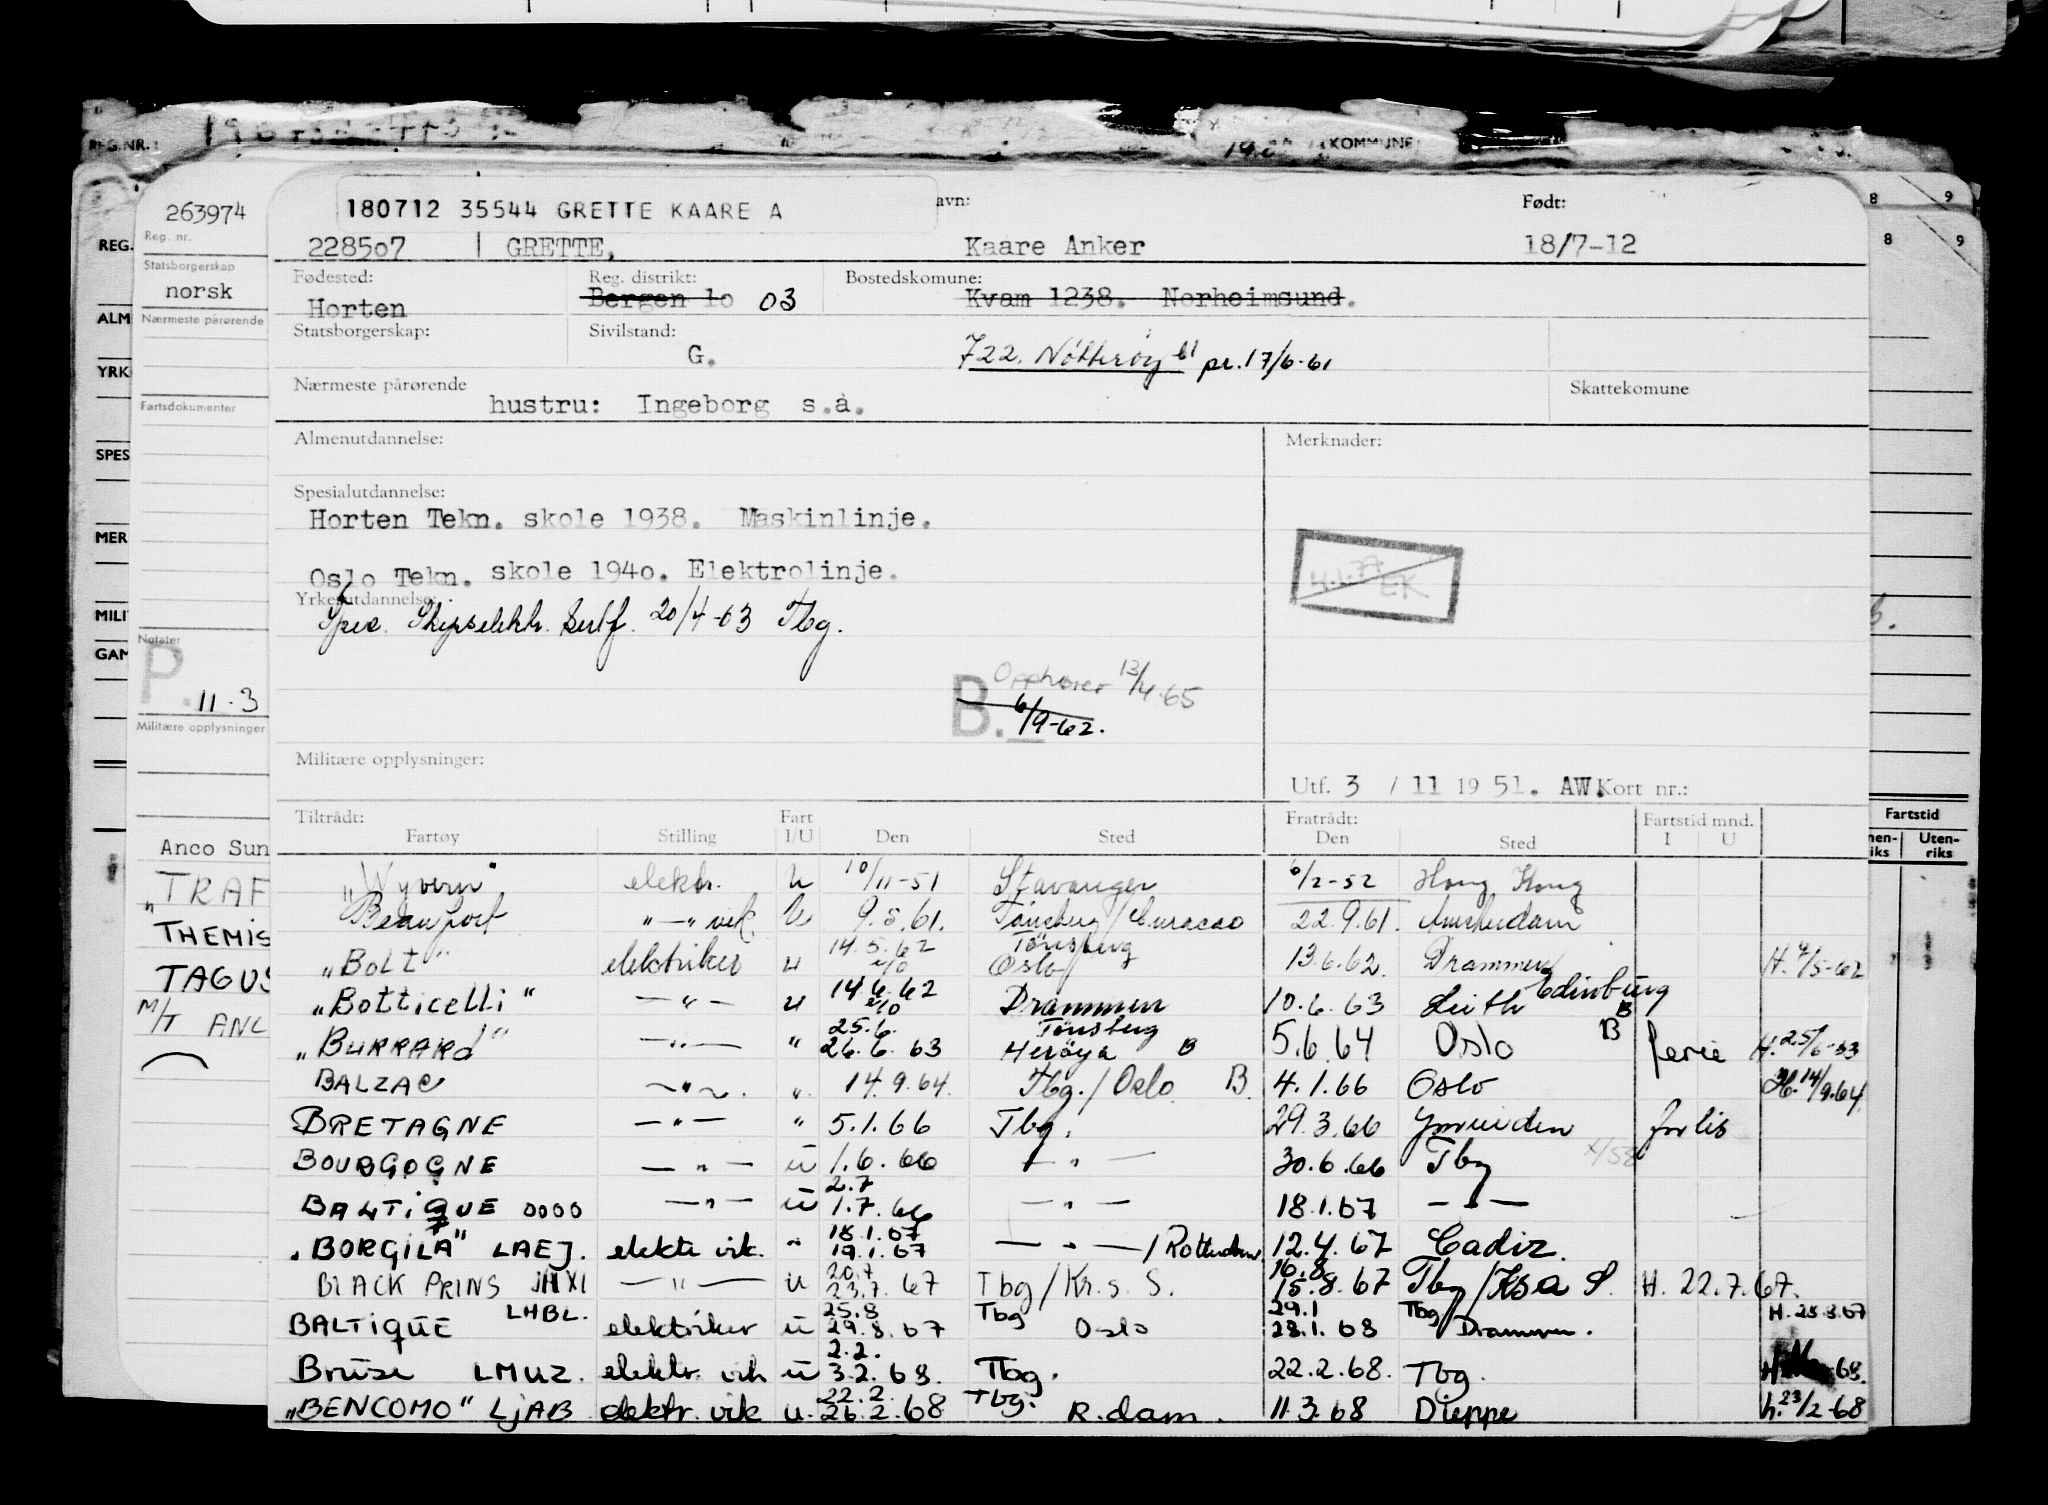 REG.NR.
KOMMUNE
8 9
8 9
263974
Reg. nr.
Statsborgerskap
norsk
Nærmeste pårørende
Fartsdokumenter
Notater
P. 11.3
Militære opplysninger
Anco Sun
„TRAF
THEMIS
TAGUS
M/T ANC
REG.
ALM
YRK
SPES
MER
MILI
GAM
180712 35544 GRETTE KAARE A
avn:
Født:
228507 GRETTE, Kaare Anker 18/7-12
Fødested: Reg. distrikt: Bostedskomune:
Horten Bergen 1o 03 Kvam 1238. Norheimsund.
Statsborgerskap: Sivilstand:
G. 722. Nøtterøy bl pr. 17/6-61
Nærmeste pårørende Skattekomune
hustru: Ingeborg s.å.
Almenutdannelse: Merknader:
Spesialutdannelse:
Horten Tekn. skole 1938. Maskinlinje.
Oslo Tekn. skole 194o. Elektrolinje.
Yrkesutdannelse:
Spes. Skipselektr. Sertf. 20/4-63 Tbg.
EK
B. Opphører 13/4-65
6/9-62.
Militære opplysninger:
Utf. 3 / 11 19 51. AW. Kort nr.:
Tiltrådt: Fart Fratrådt: Fartstid mnd.
Fartøy Stilling I/U Den Sted Den Sted I U
Fartstid
nen-riks Uten-riks
„Wyvern" elektr. u 10/11-51 Stavanger 6/2-52 Hong Kong
Beauport "—" vik. u 9.5.61. Tönsberg/Curacao 22.9.61. Amsterdam
14.5.62 Tönsberg
„Bolt" elektriker u Oslo 13.6.62. Drammen H. 4/5-62
„Botticelli" —"— u 14.6.62 Drammen 10.6.63 Leith Edinburg B
25.6. Tönsberg
„BURRARd" —"— " 26.6.63 Herøya B 5.6.64 Oslo B ferie H. 25/6-63
BALZAC —"—. ". 14.9.64. Tbg./Oslo B. 4.1.66 Oslo H. 14/9.64.
BRETAGNE —"— " 5.1.66 Tbg. 29.3.66 Ymuiden forlis
BOURGOGNE —"— u 1.6.66 —"— 30.6.66 Tbg
2.7
BALTiQUE oooo —"— u 1.7.66 —"— 18.1.67 —"—
18.1.67
„BORGILA" LAEJ. elektr vik. " 19.1.67 —"—/Rotterdam 12.4.67 Cadiz.
20.7 16.8
BLACK PRINS JHXI —"— u 23.7.67 Tbg/Kr.s. S. 15.8.67 Tbg/Krsa S. H. 22.7.67.
25.8 Tbg 29.1 Tbg
BALTIQUE LHBL. elektriker u 29.8.67 Oslo 28.1.68 Drammen. H. 25.8.67
2.2.
Bruse LMUZ. elektr. vik u 3.2.68. Tbg. 22.2.68. Tbg. H. 68.
22.2. Tbg.
„BENCOMO" LjAB elektr. vik u. 26.2.68 R.dam. 11.3.68 Dieppe h. 23/2-68